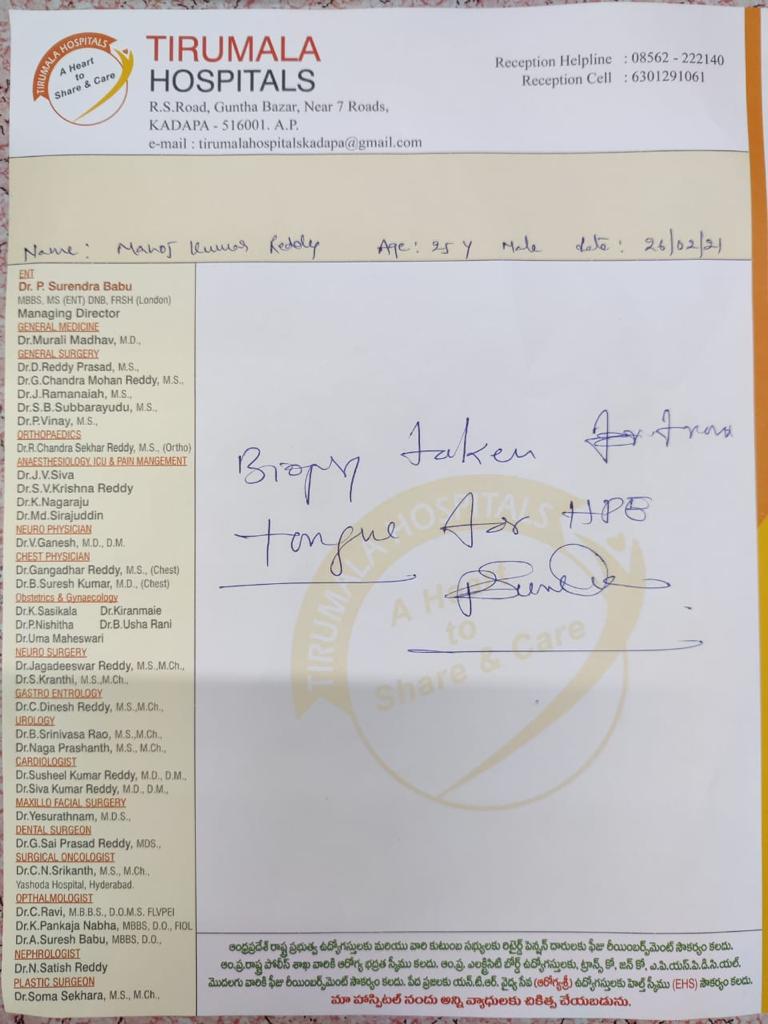 TIRUMALA HOSPITALS
A Heart
to
Share & Care
TIRUMALA
HOSPITALS
R.S.Road, Guntha Bazar, Near 7 Roads,
KADAPA - 516001. A.P.
e-mail : tirumalahospitalskadapa@gmail.com
Reception Helpline : 08562 - 222140
Reception Cell : 6301291061
Name: Manoj Kumar Reddy Age: 25 Y Male date: 26/02/21
ENT
Dr. P. Surendra Babu
MBBS, MS (ENT) DNB, FRSH (London)
Managing Director
GENERAL MEDICINE
Dr.Murali Madhav, M.D.,
GENERAL SURGERY
Dr.D.Reddy Prasad, M.S.,
Dr.G.Chandra Mohan Reddy, M.S.,
Dr.J.Ramanaiah, M.S.,
Dr.S.B.Subbarayudu, M.S.,
Dr.P.Vinay, M.S.,
ORTHOPAEDICS
Dr.R.Chandra Sekhar Reddy, M.S., (Ortho)
ANAESTHESIOLOGY, ICU & PAIN MANGEMENT
Dr.J.V.Siva
Dr.S.V.Krishna Reddy
Dr.K.Nagaraju
Dr.Md.Sirajuddin
NEURO PHYSICIAN
Dr.V.Ganesh, M.D., D.M.
CHEST PHYSICIAN
Dr.Gangadhar Reddy, M.S., (Chest)
Dr.B.Suresh Kumar, M.D., (Chest)
Obstetrics & Gynaecology
Dr.K.Sasikala Dr.Kiranmaie
Dr.P.Nishitha Dr.B.Usha Rani
Dr.Uma Maheswari
NEURO SURGERY
Dr.Jagadeeswar Reddy, M.S.,M.Ch.,
Dr.S.Kranthi, M.S.,M.Ch.,
GASTRO ENTROLOGY
Dr.C.Dinesh Reddy, M.S.,M.Ch.,
UROLOGY
Dr.B.Srinivasa Rao, M.S.,M.Ch.,
Dr.Naga Prashanth, M.S., M.Ch.,
CARDIOLOGIST
Dr.Susheel Kumar Reddy, M.D., D.M.,
Dr.Siva Kumar Reddy, M.D., D.M.,
MAXILLO FACIAL SURGERY
Dr.Yesurathnam, M.D.S.,
DENTAL SURGEON
Dr.G.Sai Prasad Reddy, MDS.,
SURGICAL ONCOLOGIST
Dr.C.N.Srikanth, M.S., M.Ch.,
Yashoda Hospital, Hyderabad.
OPTHALMOLOGIST
Dr.C.Ravi, M.B.B.S., D.O.M.S. FLVPEI
Dr.K.Pankaja Nabha, MBBS, D.O., FIOL
Dr.A.Suresh Babu, MBBS, D.O.,
NEPHROLOGIST
Dr.N.Satish Reddy
PLASTIC SURGEON
Dr.Soma Sekhara, M.S., M.Ch.,
Biopsy taken from
tongue for HPE
TIRUMALA HOSPITALS
A Heart
to
Share & Care
ఆంధ్రప్రదేశ్ రాష్ట్ర ప్రభుత్వ ఉద్యోగస్తులకు మరియు వారి కుటుంబ సభ్యులకు రిటైర్డ్ పెన్షన్ దారులకు ఫీజు రీయింబర్స్‌మెంట్ సౌకర్యం కలదు.
ఆం.ప్ర.రాష్ట్ర పోలీస్ శాఖ వారికి ఆరోగ్య భద్రత స్కీము కలదు. ఆం.ప్ర. ఎలక్ట్రిసిటి బోర్డ్ ఉద్యోగస్తులకు, ట్రాన్స్ కో, జన్ కో, ఎ.పి.యస్.పి.డి.సి.యల్.
మొదలగు వారికి ఫీజు రీయింబర్స్‌మెంట్ సౌకర్యం కలదు. పేద ప్రజలకు యన్.టి.ఆర్. వైద్య సేవ (ఆరోగ్యశ్రీ) ఉద్యోగస్తులకు హెల్త్ స్కీము (EHS) సౌకర్యం కలదు.
మా హాస్పిటల్ నందు అన్ని వ్యాధులకు చికిత్స చేయబడును.